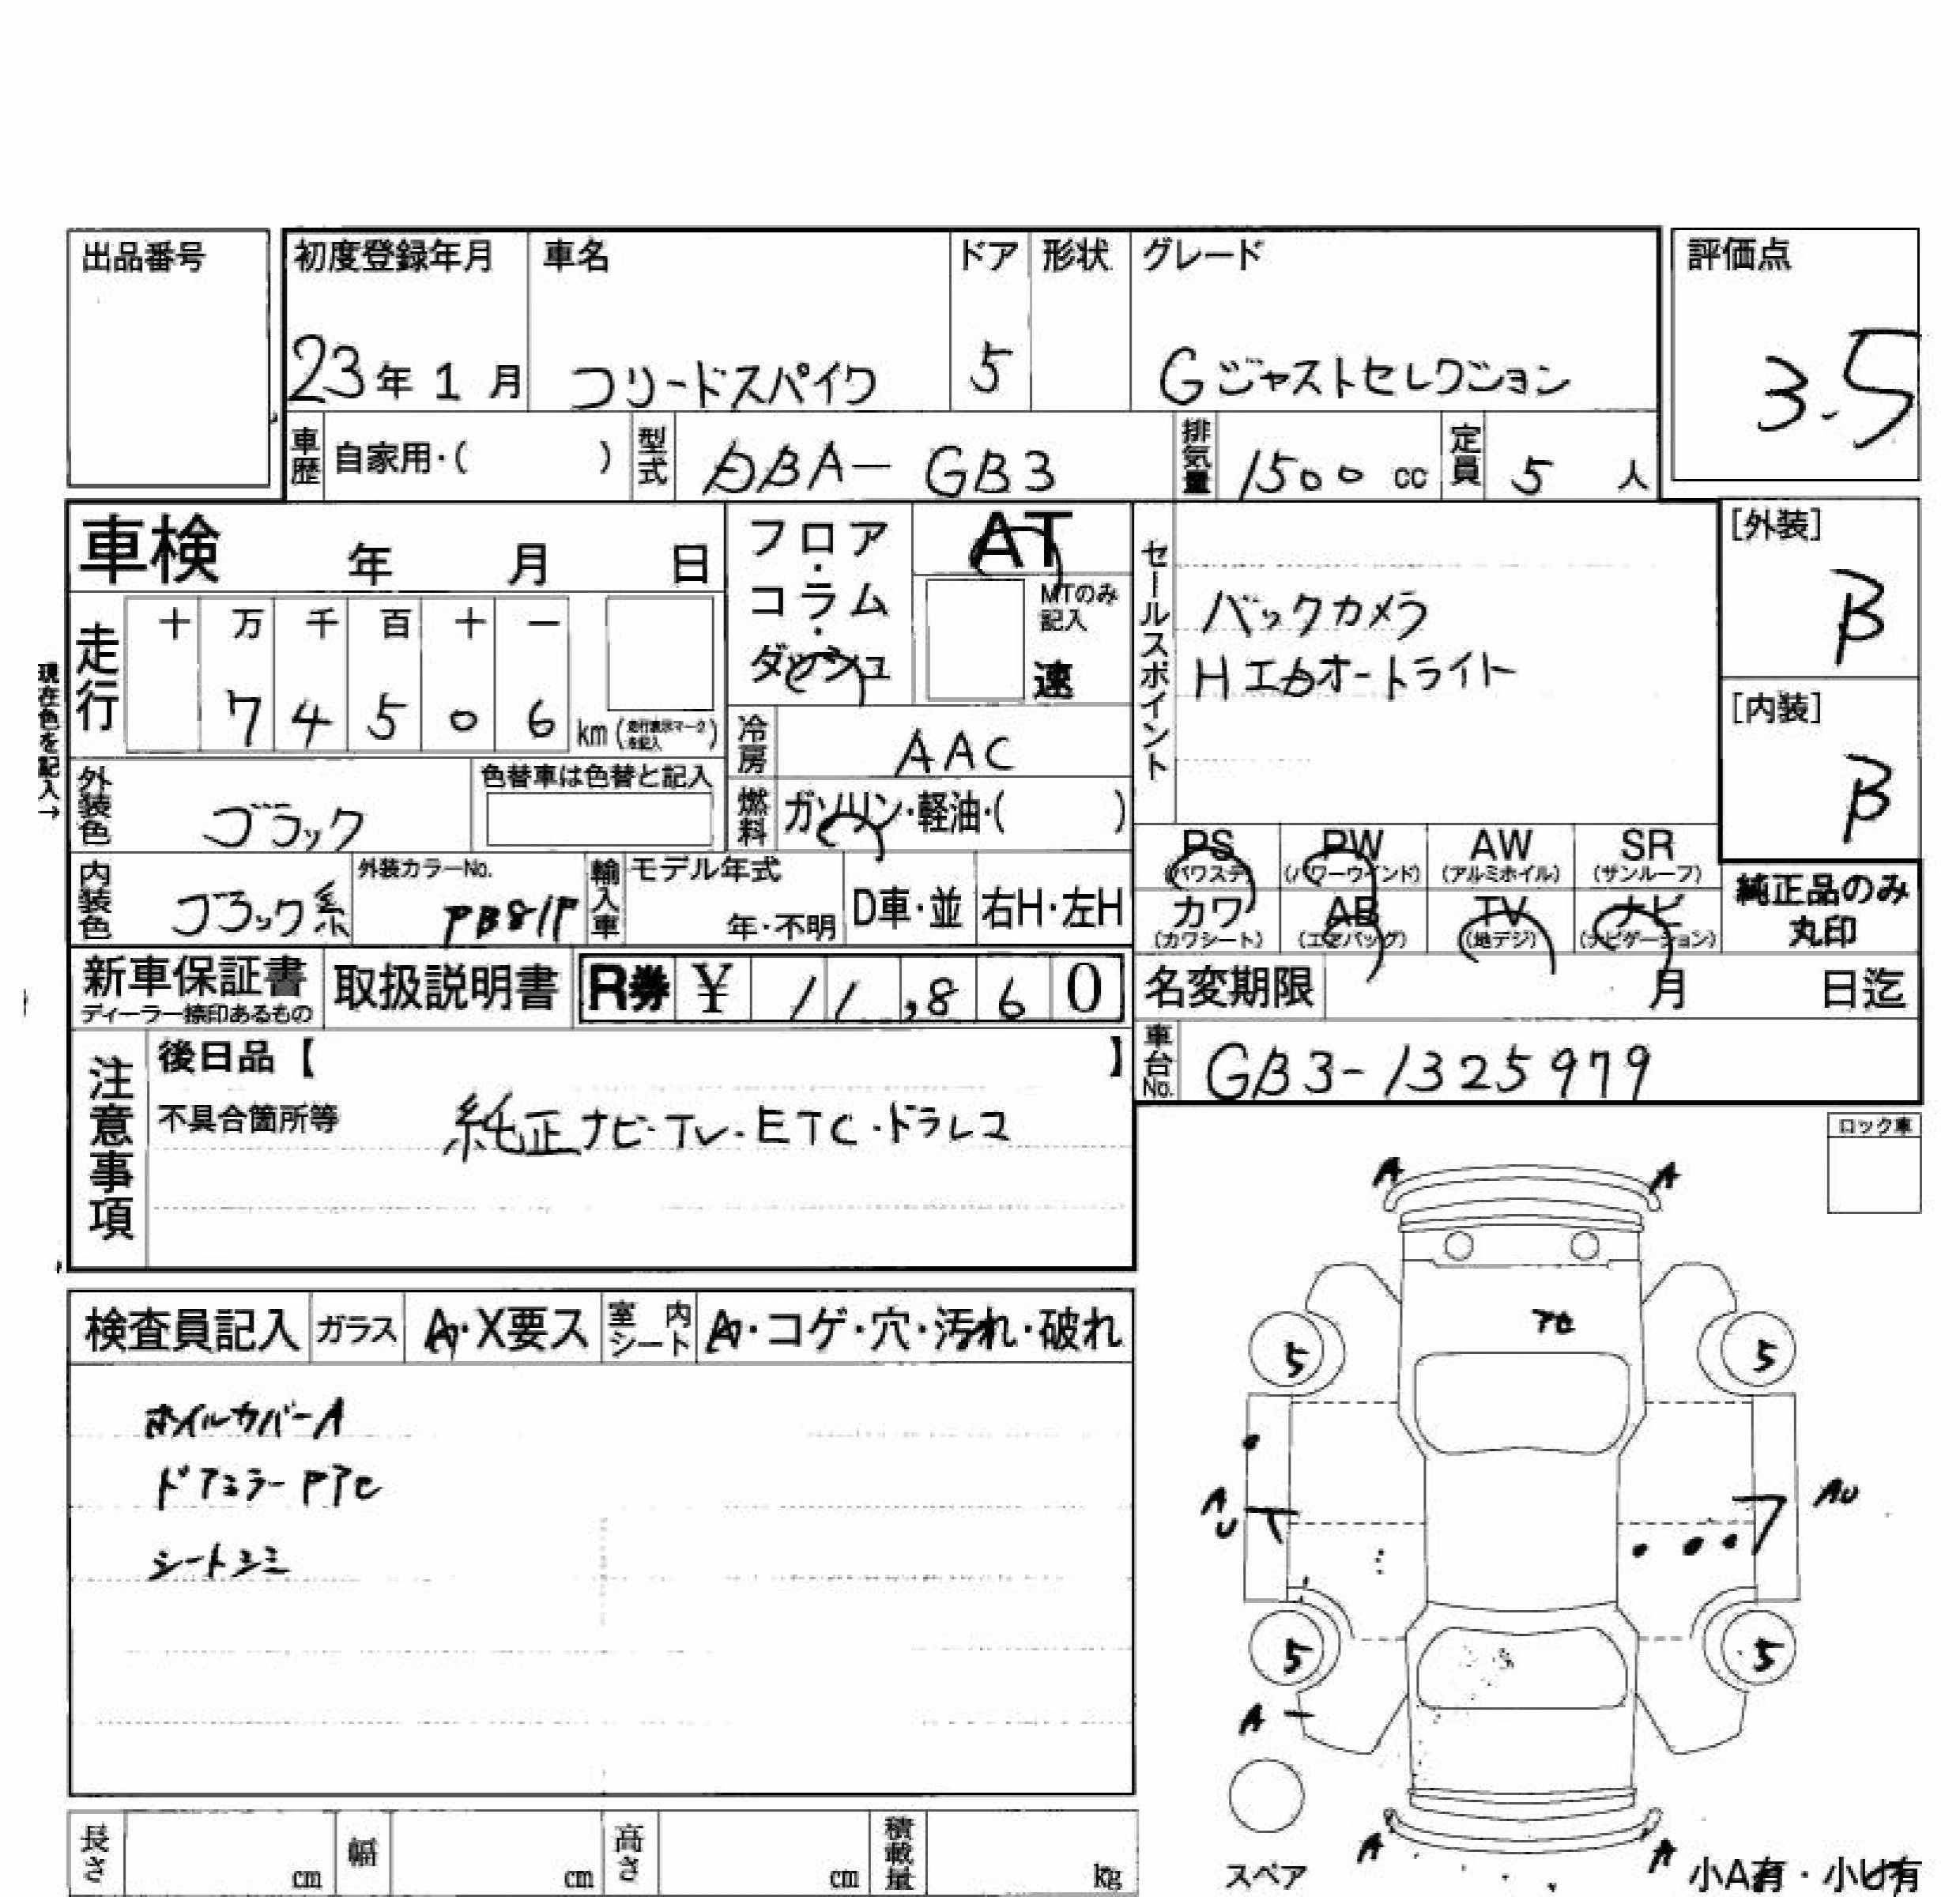 出品番号
初度登録年月 車名 ドア 形状 グレード 評価点
23年 1月 フリードスパイク 5 Gジャストセレクション 3.5
車歴 自家用・( ) 型式 DBA-GB3 排気量 1500 cc 定員 5 人
車検 年 月 日
フロア・コラム・ダッシュ AT
MTのみ記入 速
セールスポイント
バックカメラ
Hエカオートライト
[外装] B
[内装] B
現在色を記入→
走行 十 万 千 百 十 一
7 4 5 0 6 km (走行表示マークを記入)
冷房 AAC
外装色 ブラック 色替車は色替と記入
燃料 ガソリン・軽油・( )
PS (パワステ) PW (パワーウインド) AW (アルミホイル) SR (サンルーフ)
内装色 ブラック系 外装カラーNo. PB81P 輸入車 モデル年式 年・不明 D車・並 右H・左H
カワ (カワシート) AB (エアバッグ) TV (地デジ) ナビ (ナビゲーション)
純正品のみ丸印
新車保証書 ディーラー捺印あるもの 取扱説明書 R券 ¥ 11,860
名変期限 月 日迄
注意事項 後日品【 】
車台No. GB3-1325979
不具合箇所等 純正ナビ・TV・ETC・ドラレコ
ロック車
A A
検査員記入 ガラス A・X要ス 室内シート A・コゲ・穴・汚れ・破れ
5 5
ホイルカバーA
ドアミラーP
シートシミ
AU AU
5 5
A
スペア
A A
小A有・小U有
長さ cm 幅 cm 高さ cm 積載量 kg